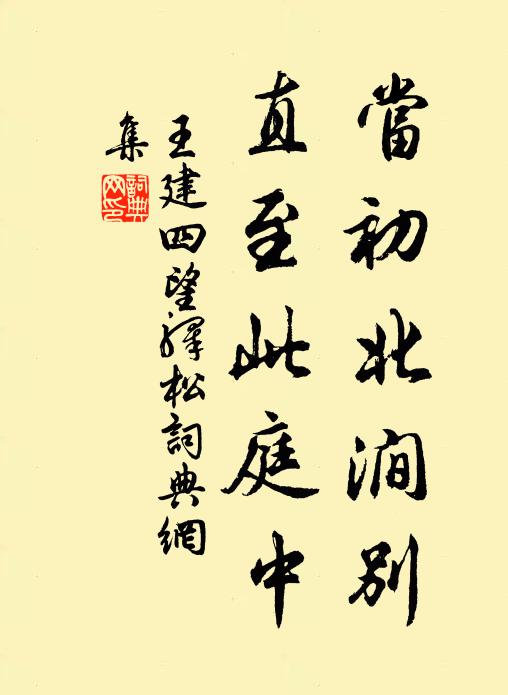 當初北澗別
直至此庭中
王建四望驛松詞典網
集
詞典網印